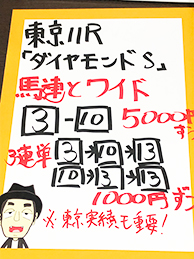 東京11R
「ダイヤモンドS」
馬連とワイド
3-10 5000円
ずつ
3連単 3→10→13
10→3→13
1000円ずつ
※東京実績も重要!